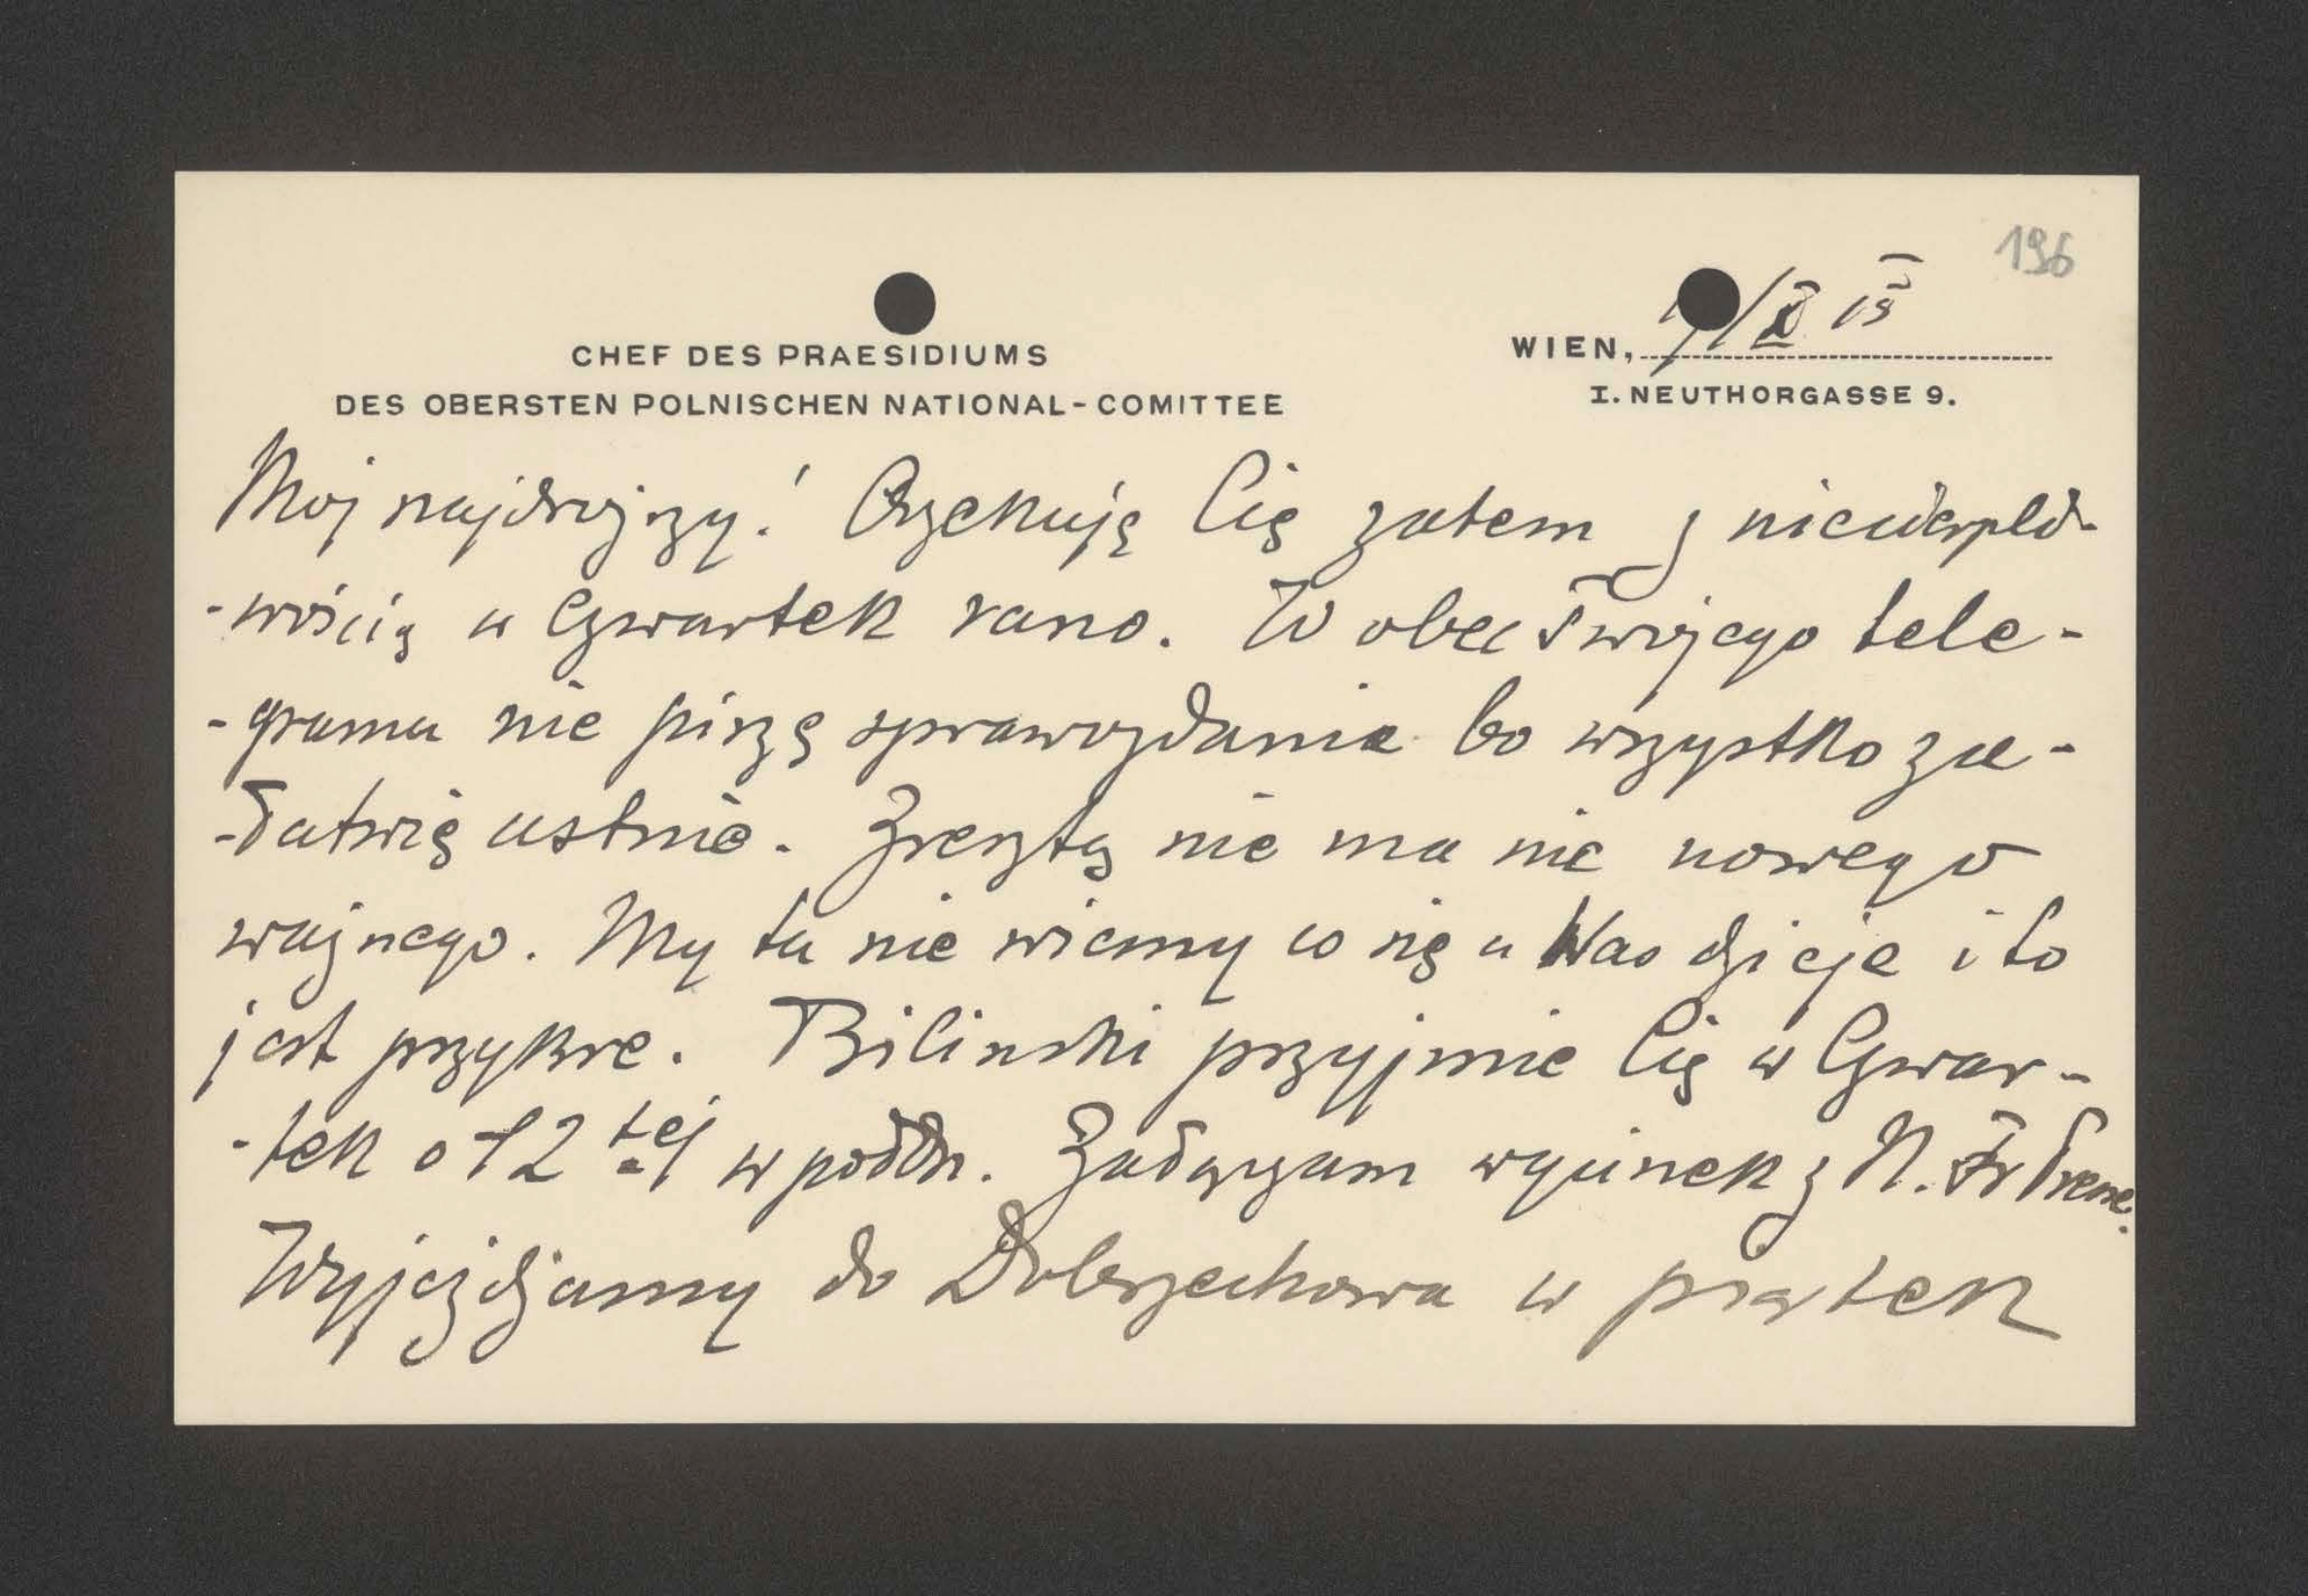 196
CHEF DES PRAESIDIUMS
DES OBERSTEN POLNISCHEN NATIONAL-COMITTEE
WIEN, /X 15
I. NEUTHORGASSE 9.
Mój najdrojszy! Oczekuję Cię zatem z niecierpli-
-wością w Czwartek rano. W obec Twojego tele-
-gramu nie piszę sprawozdania bo wszystko za-
-łatwię ustnie. Zresztą nie ma nic nowego
ważnego. My tu nie wiemy co się u Was dzieje i to
jest przykre. Bilinski przyjmie Cię w Czwar-
-tek o 12 tej w połdn. Załączam wycinek z N. Fr Presse.
Wyjeżdżamy do Dobrzechowa w piątek